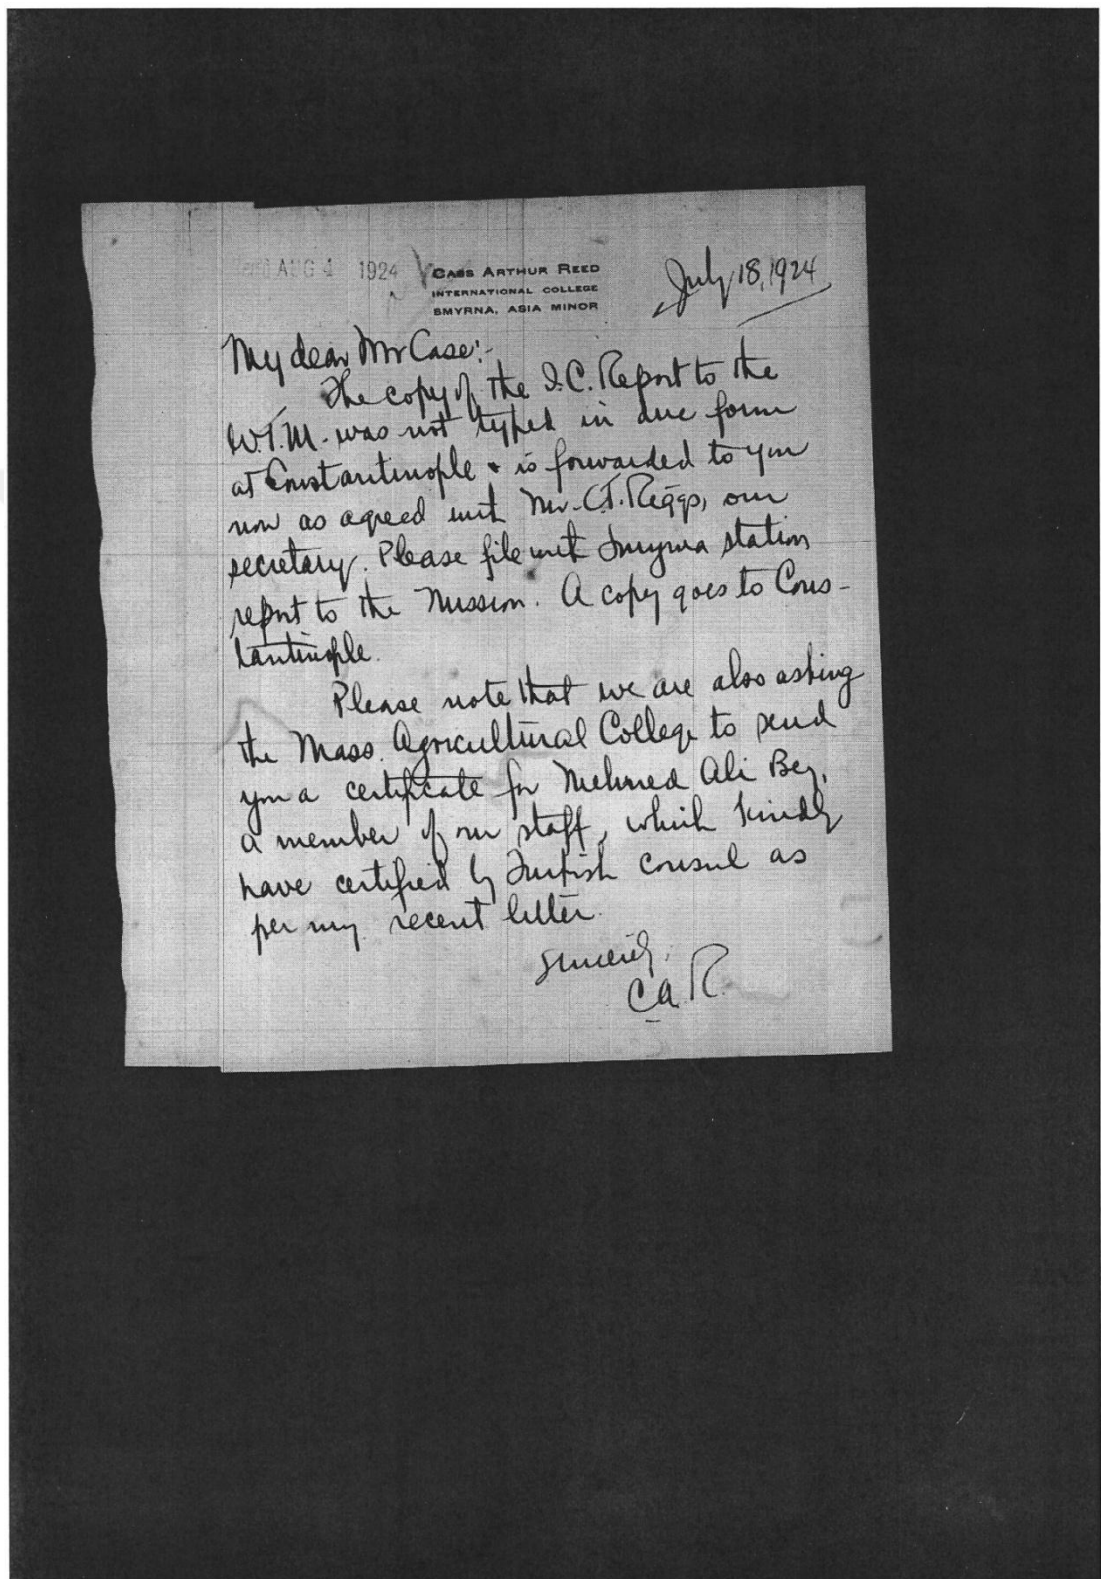 AUG 4 1924
CASS ARTHUR REED
INTERNATIONAL COLLEGE
SMYRNA, ASIA MINOR
July 18, 1924
My dear Mr Case:-
The copy of the I.C. Report to the
W.T.M. was not typed in due form
at Constantinople & is forwarded to you
now as agreed with Mr. C.T. Riggs, our
secretary. Please file with Smyrna station
report to the Mission. A copy goes to Cons-
tantinople.
Please note that we are also asking
the Mass. Agricultural College to send
you a certificate for Mehmed Ali Bey,
a member of our staff, which kindly
have certified by Turkish consul as
per my recent letter.
Sincerely,
C.A.R.